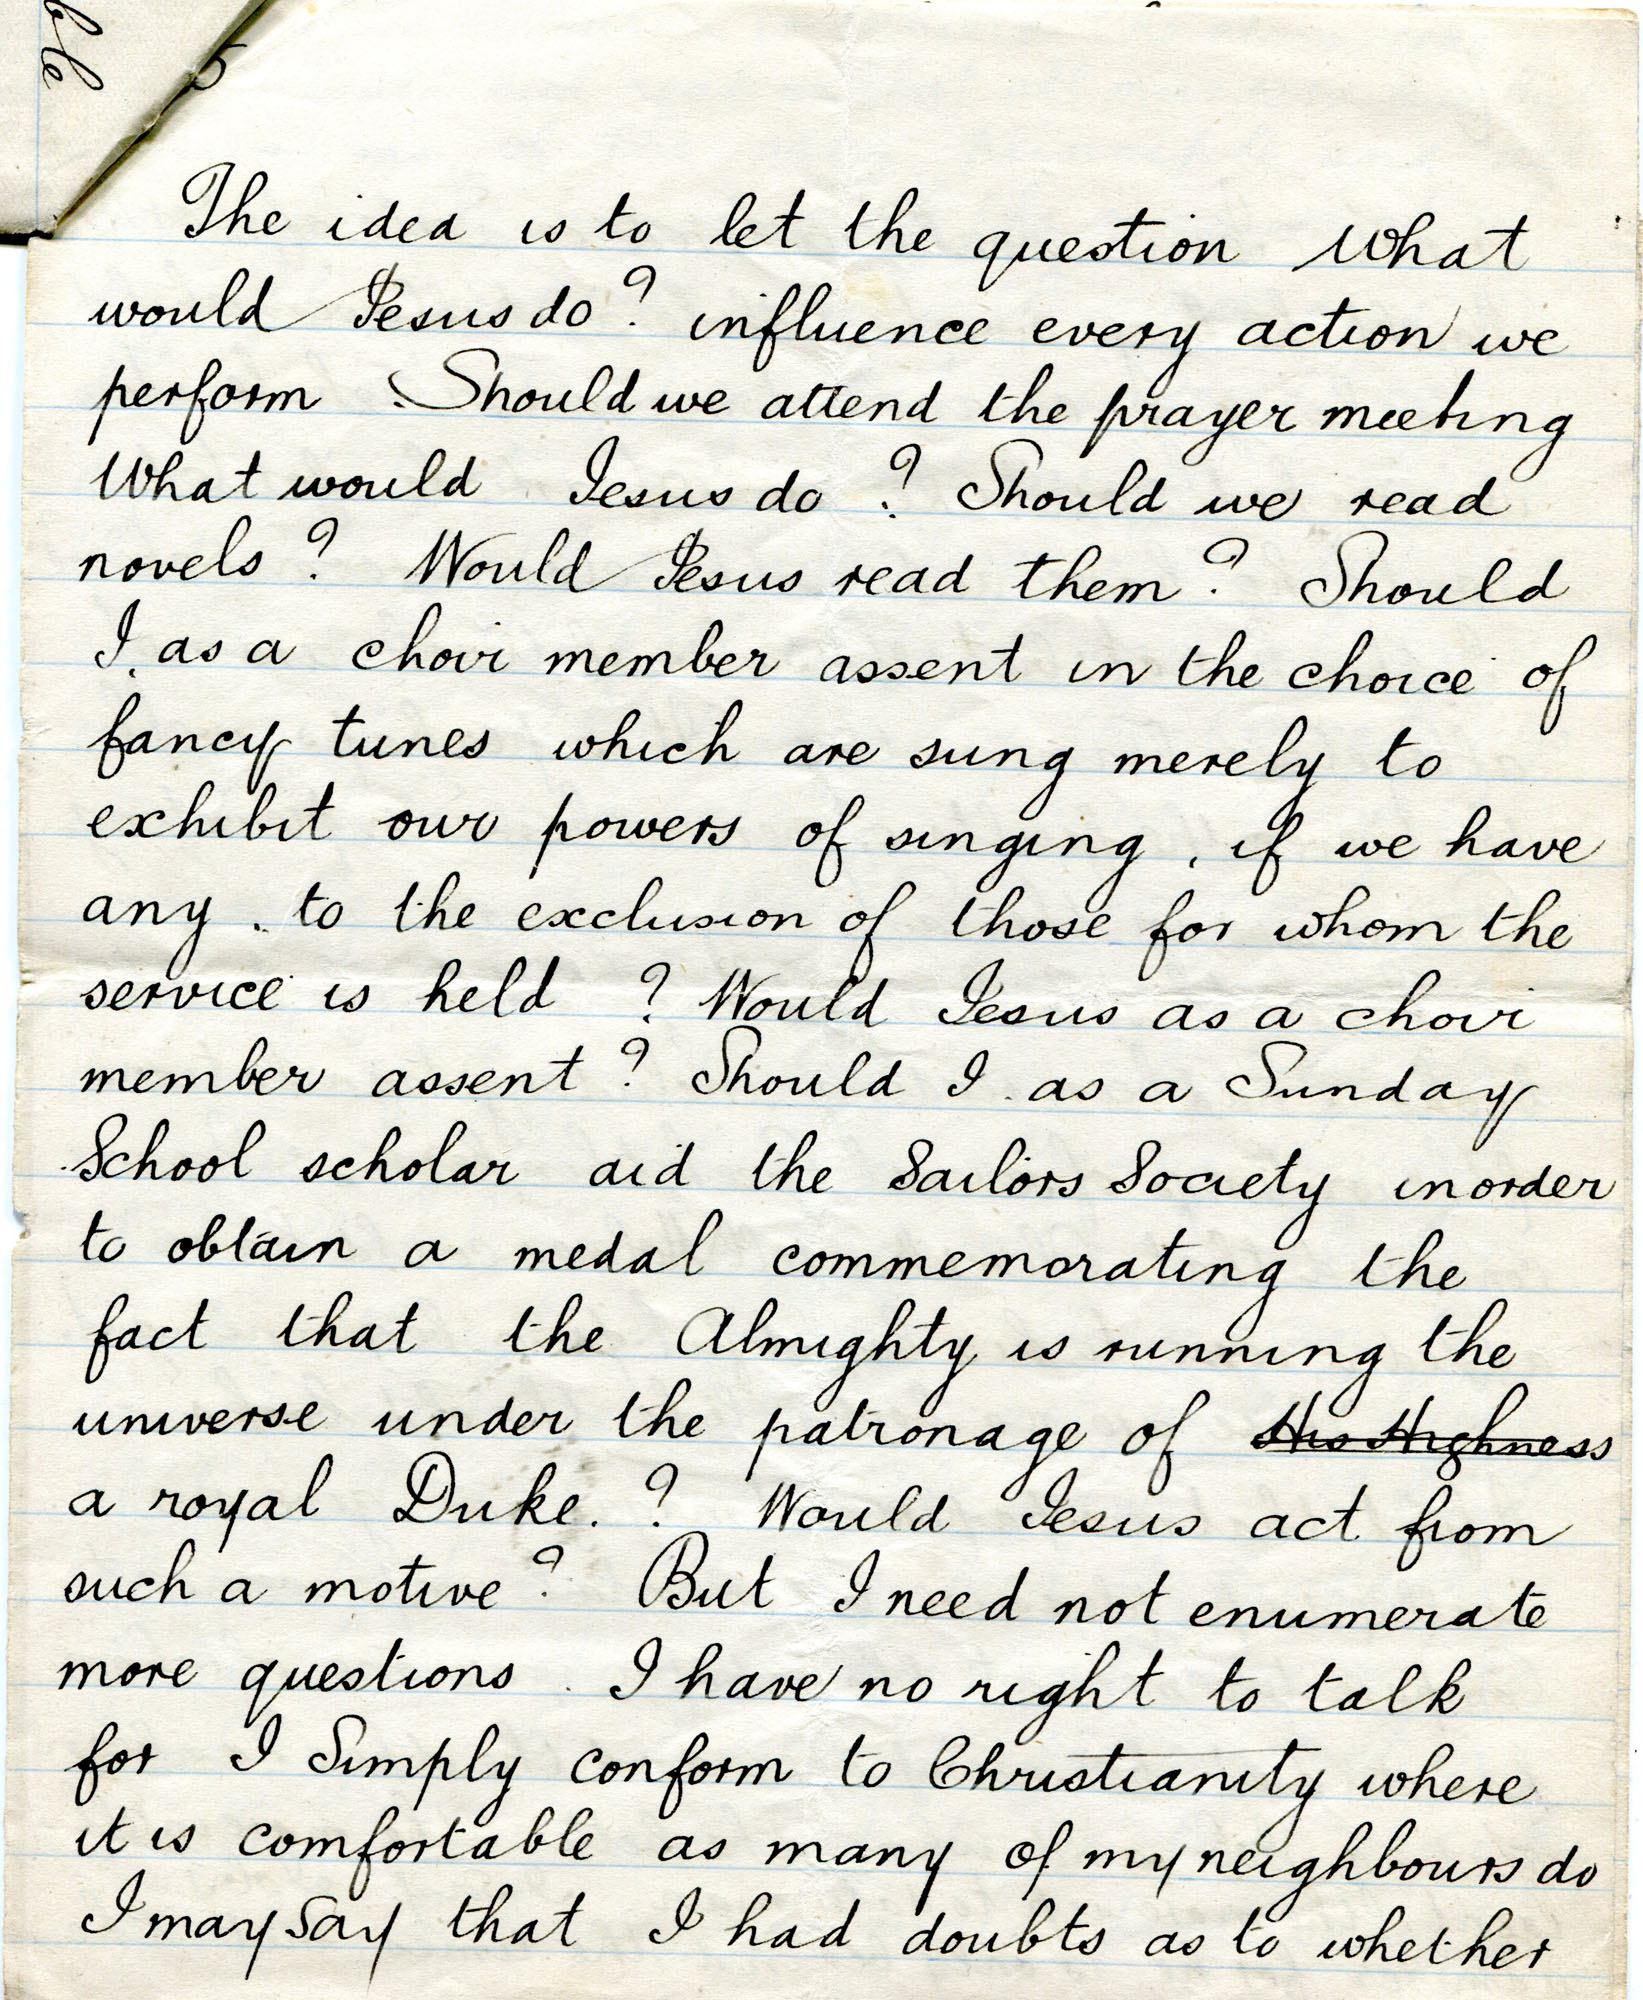 ble
5
The idea is to let the question What
would Jesus do? influence every action we
perform. Should we attend the prayer meeting
What would Jesus do? Should we read
novels? Would Jesus read them? Should
I, as a choir member assent in the choice of
fancy tunes which are sung merely to
exhibit our powers of singing, if we have
any, to the exclusion of those for whom the
service is held? Would Jesus as a choir
member assent? Should I as a Sunday
School scholar aid the Sailors Society inorder
to obtain a medal commemorating the
fact that the Almighty is running the
universe under the patronage of His Highness
a royal Duke.? Would Jesus act from
such a motive? But I need not enumerate
more questions. I have no right to talk
for I Simply conform to Christianity where
it is comfortable as many of my neighbours do
I may say that I had doubts as to whether